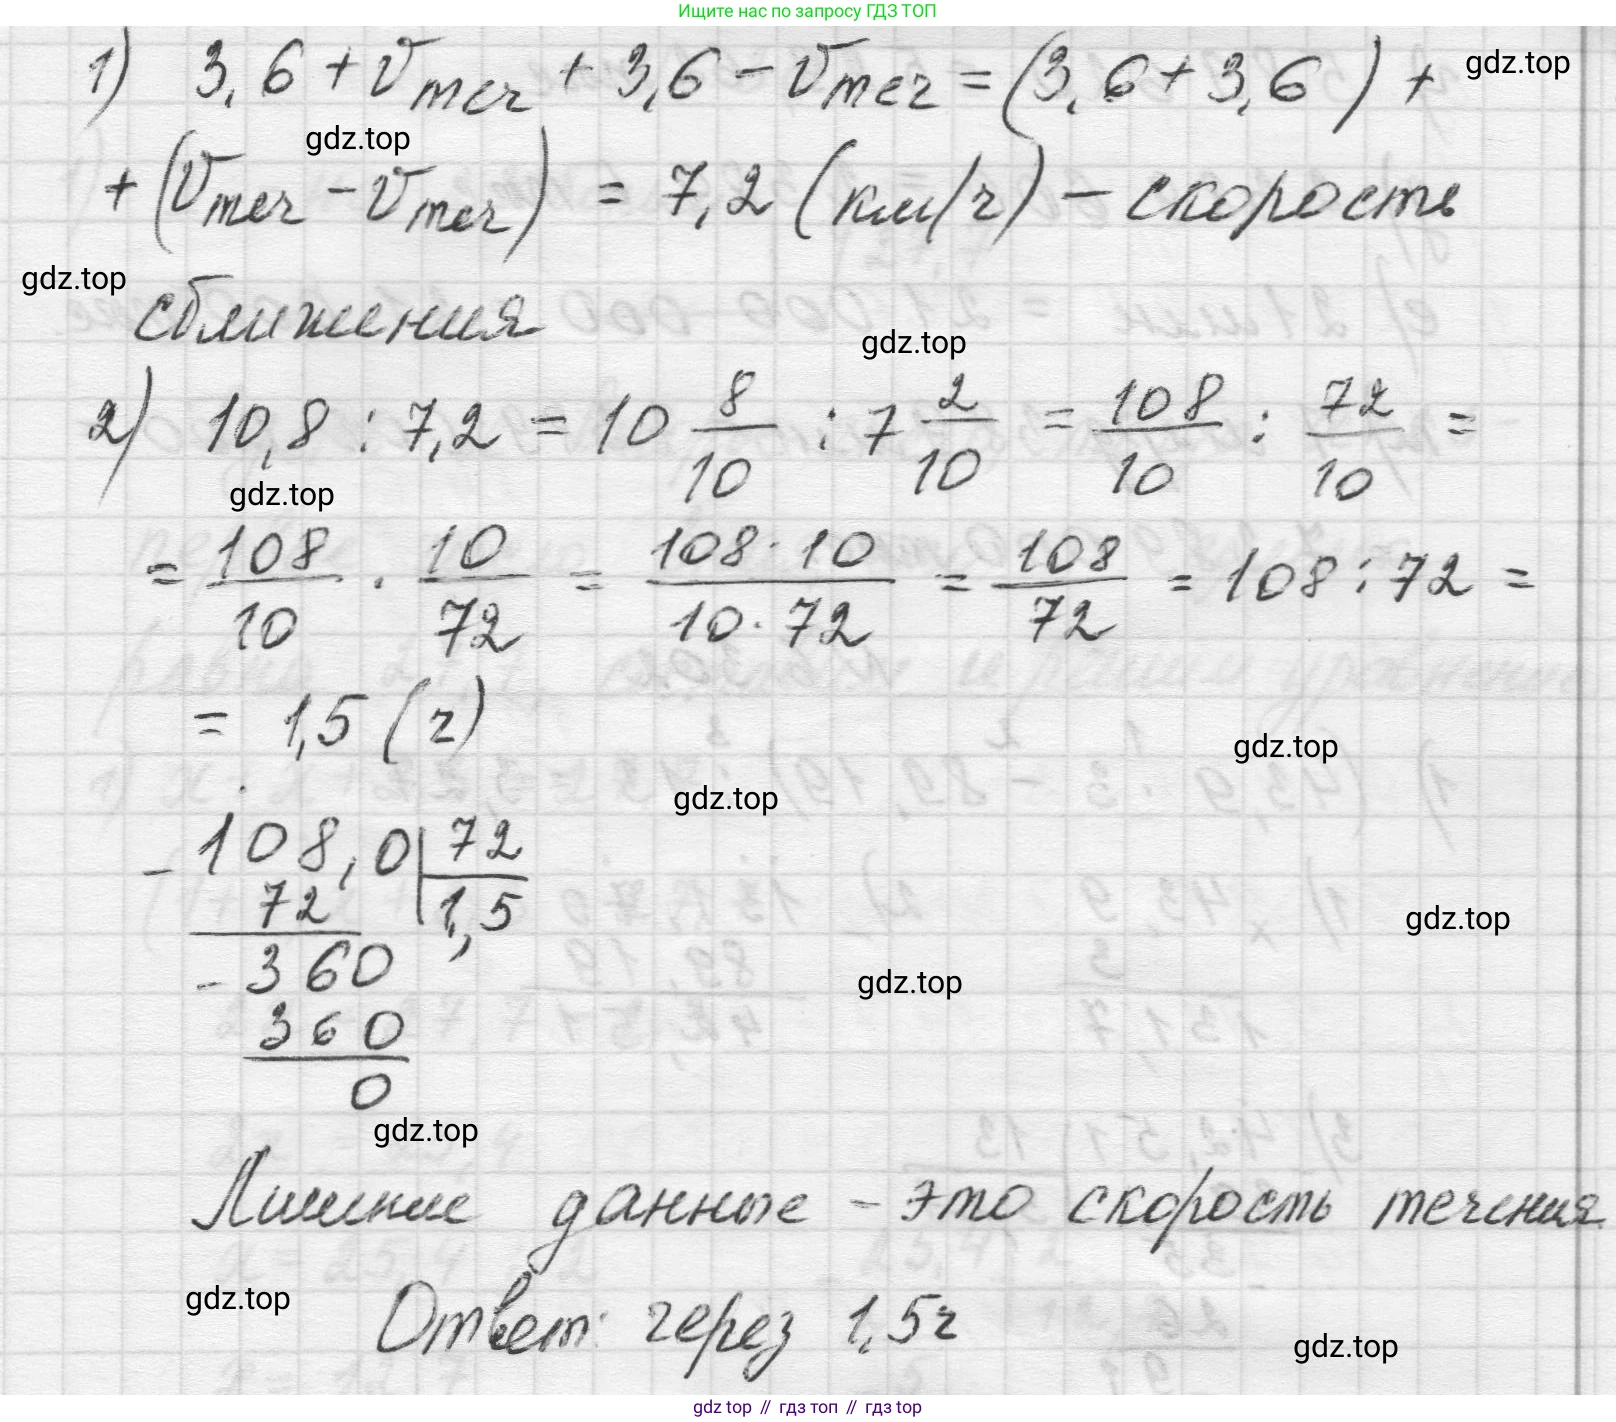 Ищите нас по запросу ГДЗ ТОП
1) 3,6 + vтеч + 3,6 - vтеч = (3,6 + 3,6) +
gdz.top
gdz.top
+ (vтеч - vтеч) = 7,2 (км/ч) - скорость
gdz.top
сближения
gdz.top
2) 10,8 : 7,2 = 10 8/10 : 7 2/10 = 108/10 : 72/10 =
gdz.top
= 108/10 · 10/72 = 108·10/10·72 = 108/72 = 108 : 72 =
= 1,5 (ч)
gdz.top
gdz.top
- 108,0 | 72
72 | 1,5
gdz.top
- 360
gdz.top
360
0
gdz.top
Лишние данные - это скорость течения
gdz.top
Ответ: через 1,5 ч
gdz.top
gdz top // гдз топ // гдз top